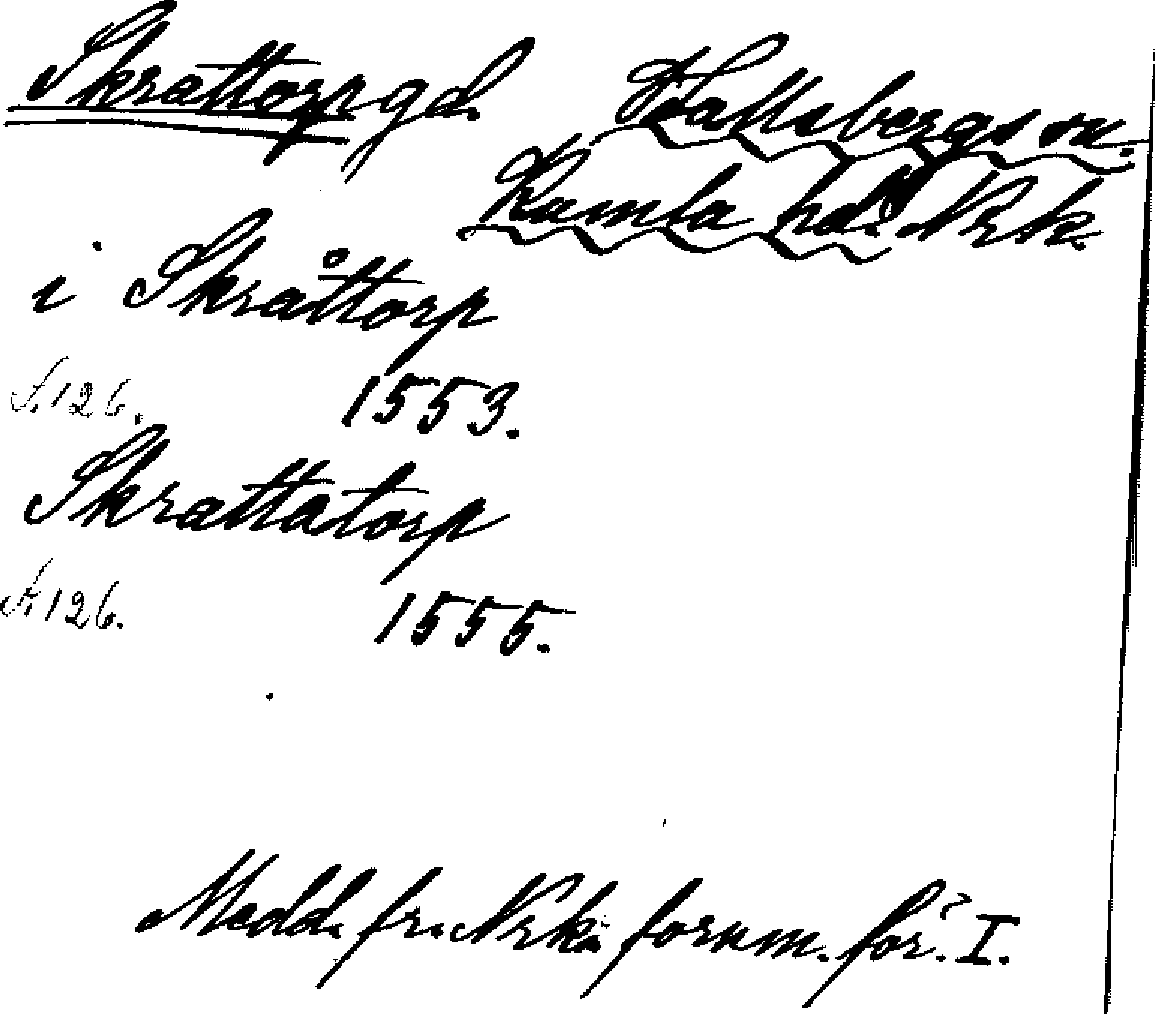 Skrattorp gd. Hallsbergs sn.
Kumla hd. Nrk.
i Skråttorp
S. 126. 1553.
Skrattatorp
S. 126. 1555.
Medd. fr. Nrks fornm. för. I.